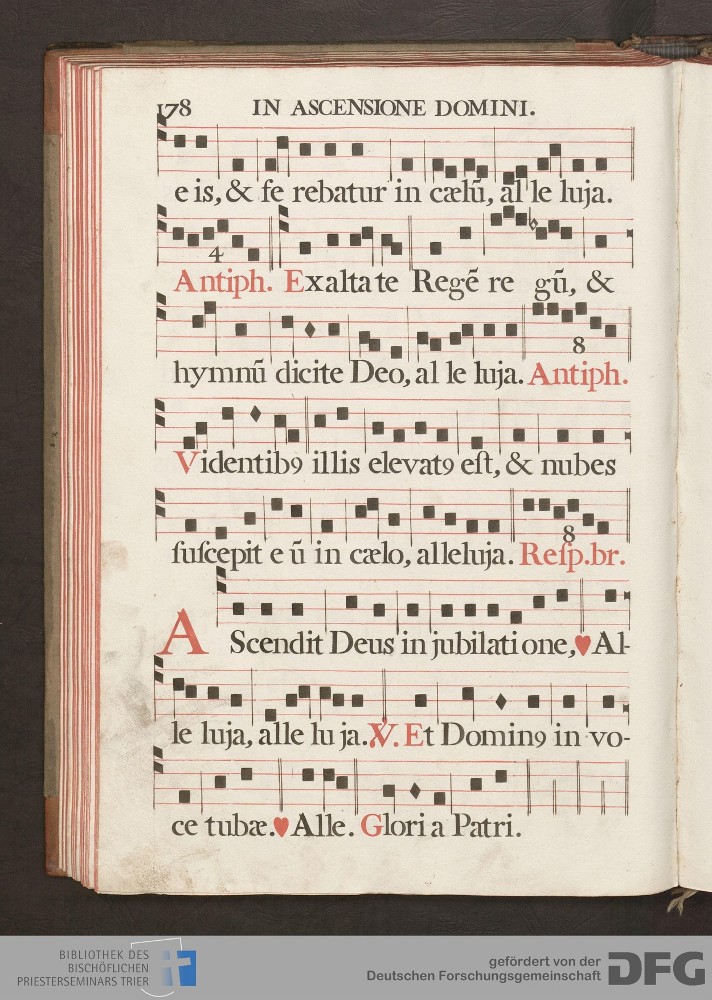 178 IN ASCENSIONE DOMINI.
e is, & fe rebatur in cælū, al le luja.
4
Antiph. Exaltate Regē re gū, &
8
hymnū dicite Deo, al le luja. Antiph.
Videntibꝯ illis elevatꝯ eſt, & nubes
8
ſuſcepit e ū in cælo, alleluja. Reſp.br.
AScendit Deus in jubilati one, ♥ Al-
le luja, alle lu ja. ℣. Et Dominꝯ in vo-
ce tubæ. ♥ Alle. Glori a Patri.
BIBLIOTHEK DES
BISCHÖFLICHEN
PRIESTERSEMINARS TRIER
gefördert von der
Deutschen Forschungsgemeinschaft
DFG